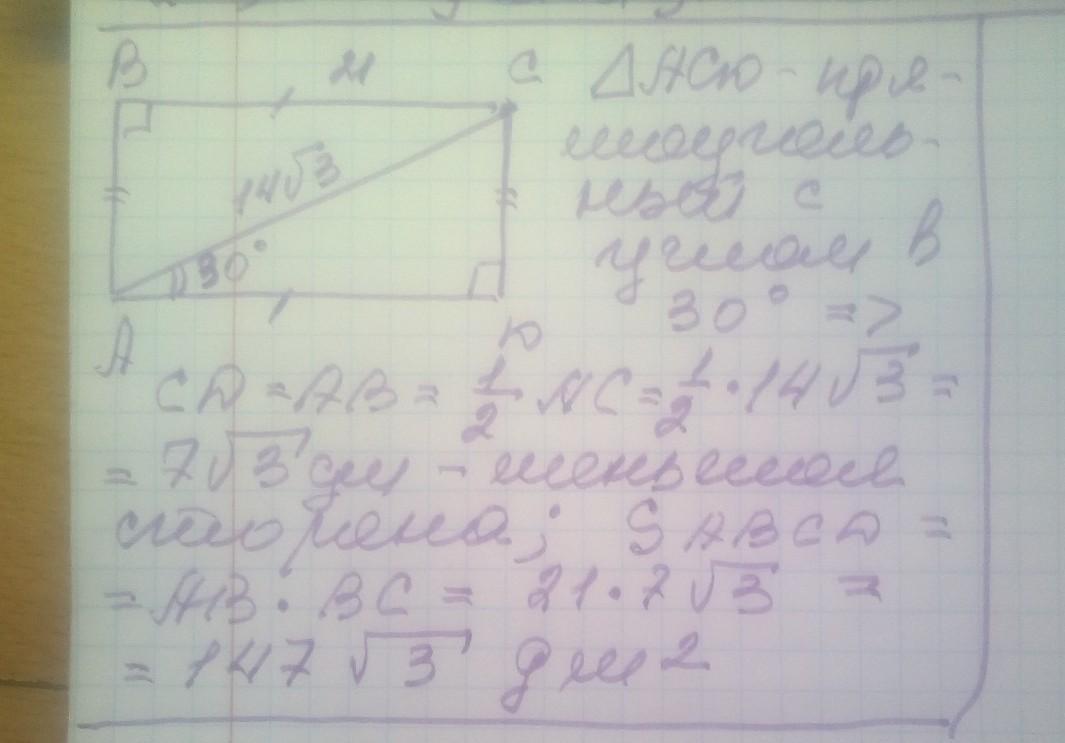 B 21 C
14√3
30°
A D
△ACD - пря-
моуголь-
ный с
углом в
30° =>
CD = AB = 1/2 · AC = 1/2 · 14√3 =
= 7√3 дм - меньшая
сторона; S ABCD =
= AB · BC = 21 · 7√3 =
= 147 √3 дм²